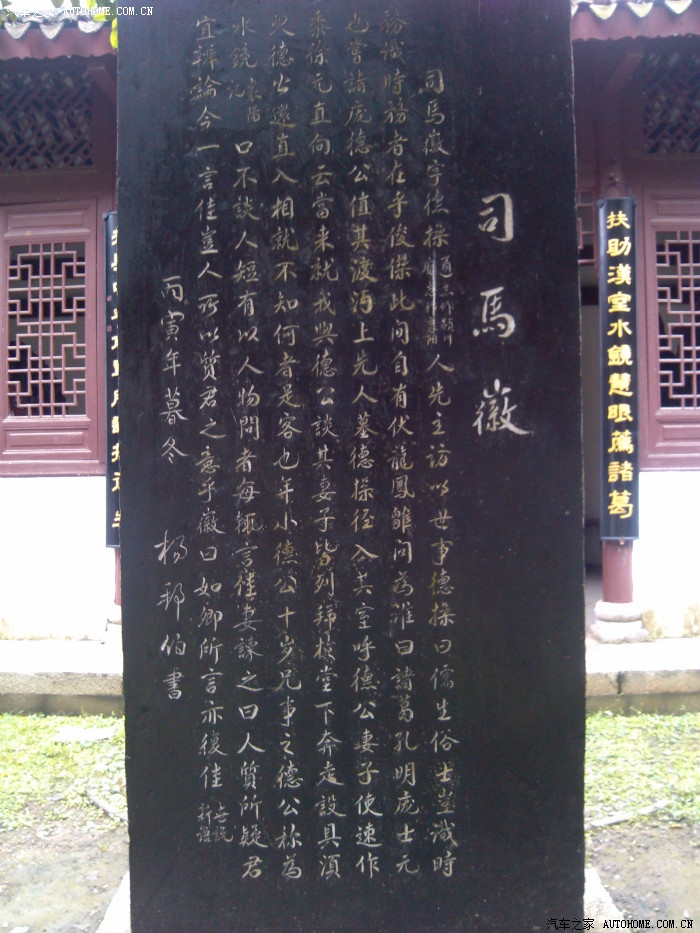 WWW.AUTOHOME.COM.CN
扶助漢室水鏡慧眼薦諸葛
司馬徽
司馬徽字德操人先主訪以世事德操曰儒生俗士豈識時
務識時務者在乎俊傑此间自有伏龍鳳雛问為誰曰諸葛孔明庞士元
也嘗詣庞德公值其渡沔上先人墓德操径入其室呼德公妻子使速作
黍徐元直向云當来就我與德公談其妻子皆列拜於堂下奔走設具須
臾德公還直入相就不知何者是客也年小德公十歲兄事之德公称為
水鏡 襄陽記 口不談人短有以人物問者每輒言佳妻諫之曰人質所疑君
宜辨論今一言佳豈人所以質君之意乎徽曰如卿所言亦復佳 世說新語
丙寅年暮冬 楊邦伯書
汽车之家 AUTOHOME.COM.CN